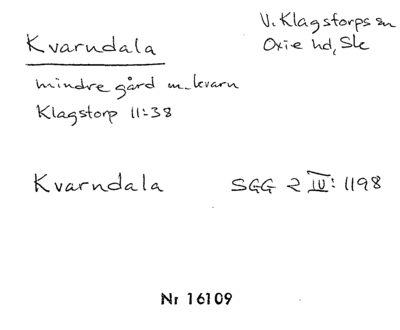 Kvarndala
V. Klagstorps sn
Oxie hd, Sk
mindre gård m. kvarn
Klagstorp 11:38
Kvarndala SGG 2 IV: 1198
Nr 16109